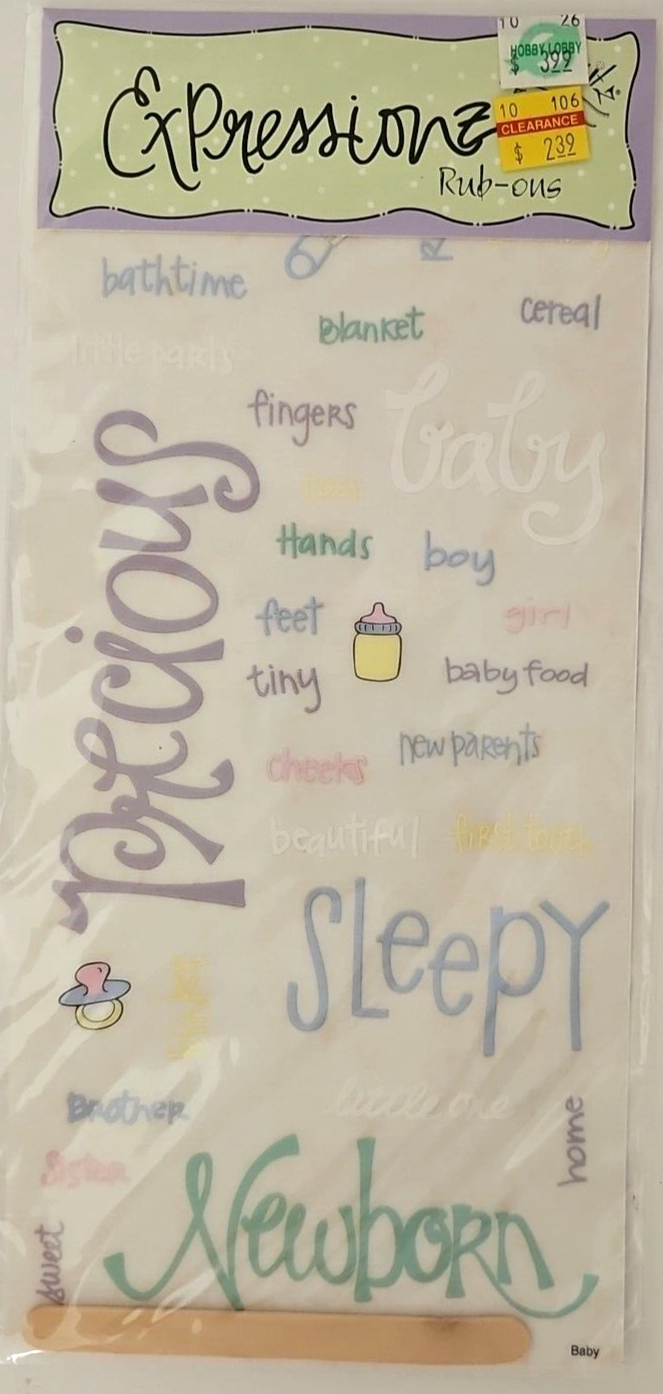 10 26
HOBBY LOBBY
$ 399
10 106
CLEARANCE
$ 239
Expressionz
Rub-ons
bathtime
Blanket
cereal
little
fingers
baby
Precious
Hands
boy
feet
girl
tiny
baby food
new parents
cheeks
beautiful
first tooth
Sleepy
Brother
little one
home
Sister
sweet
Newborn
Baby